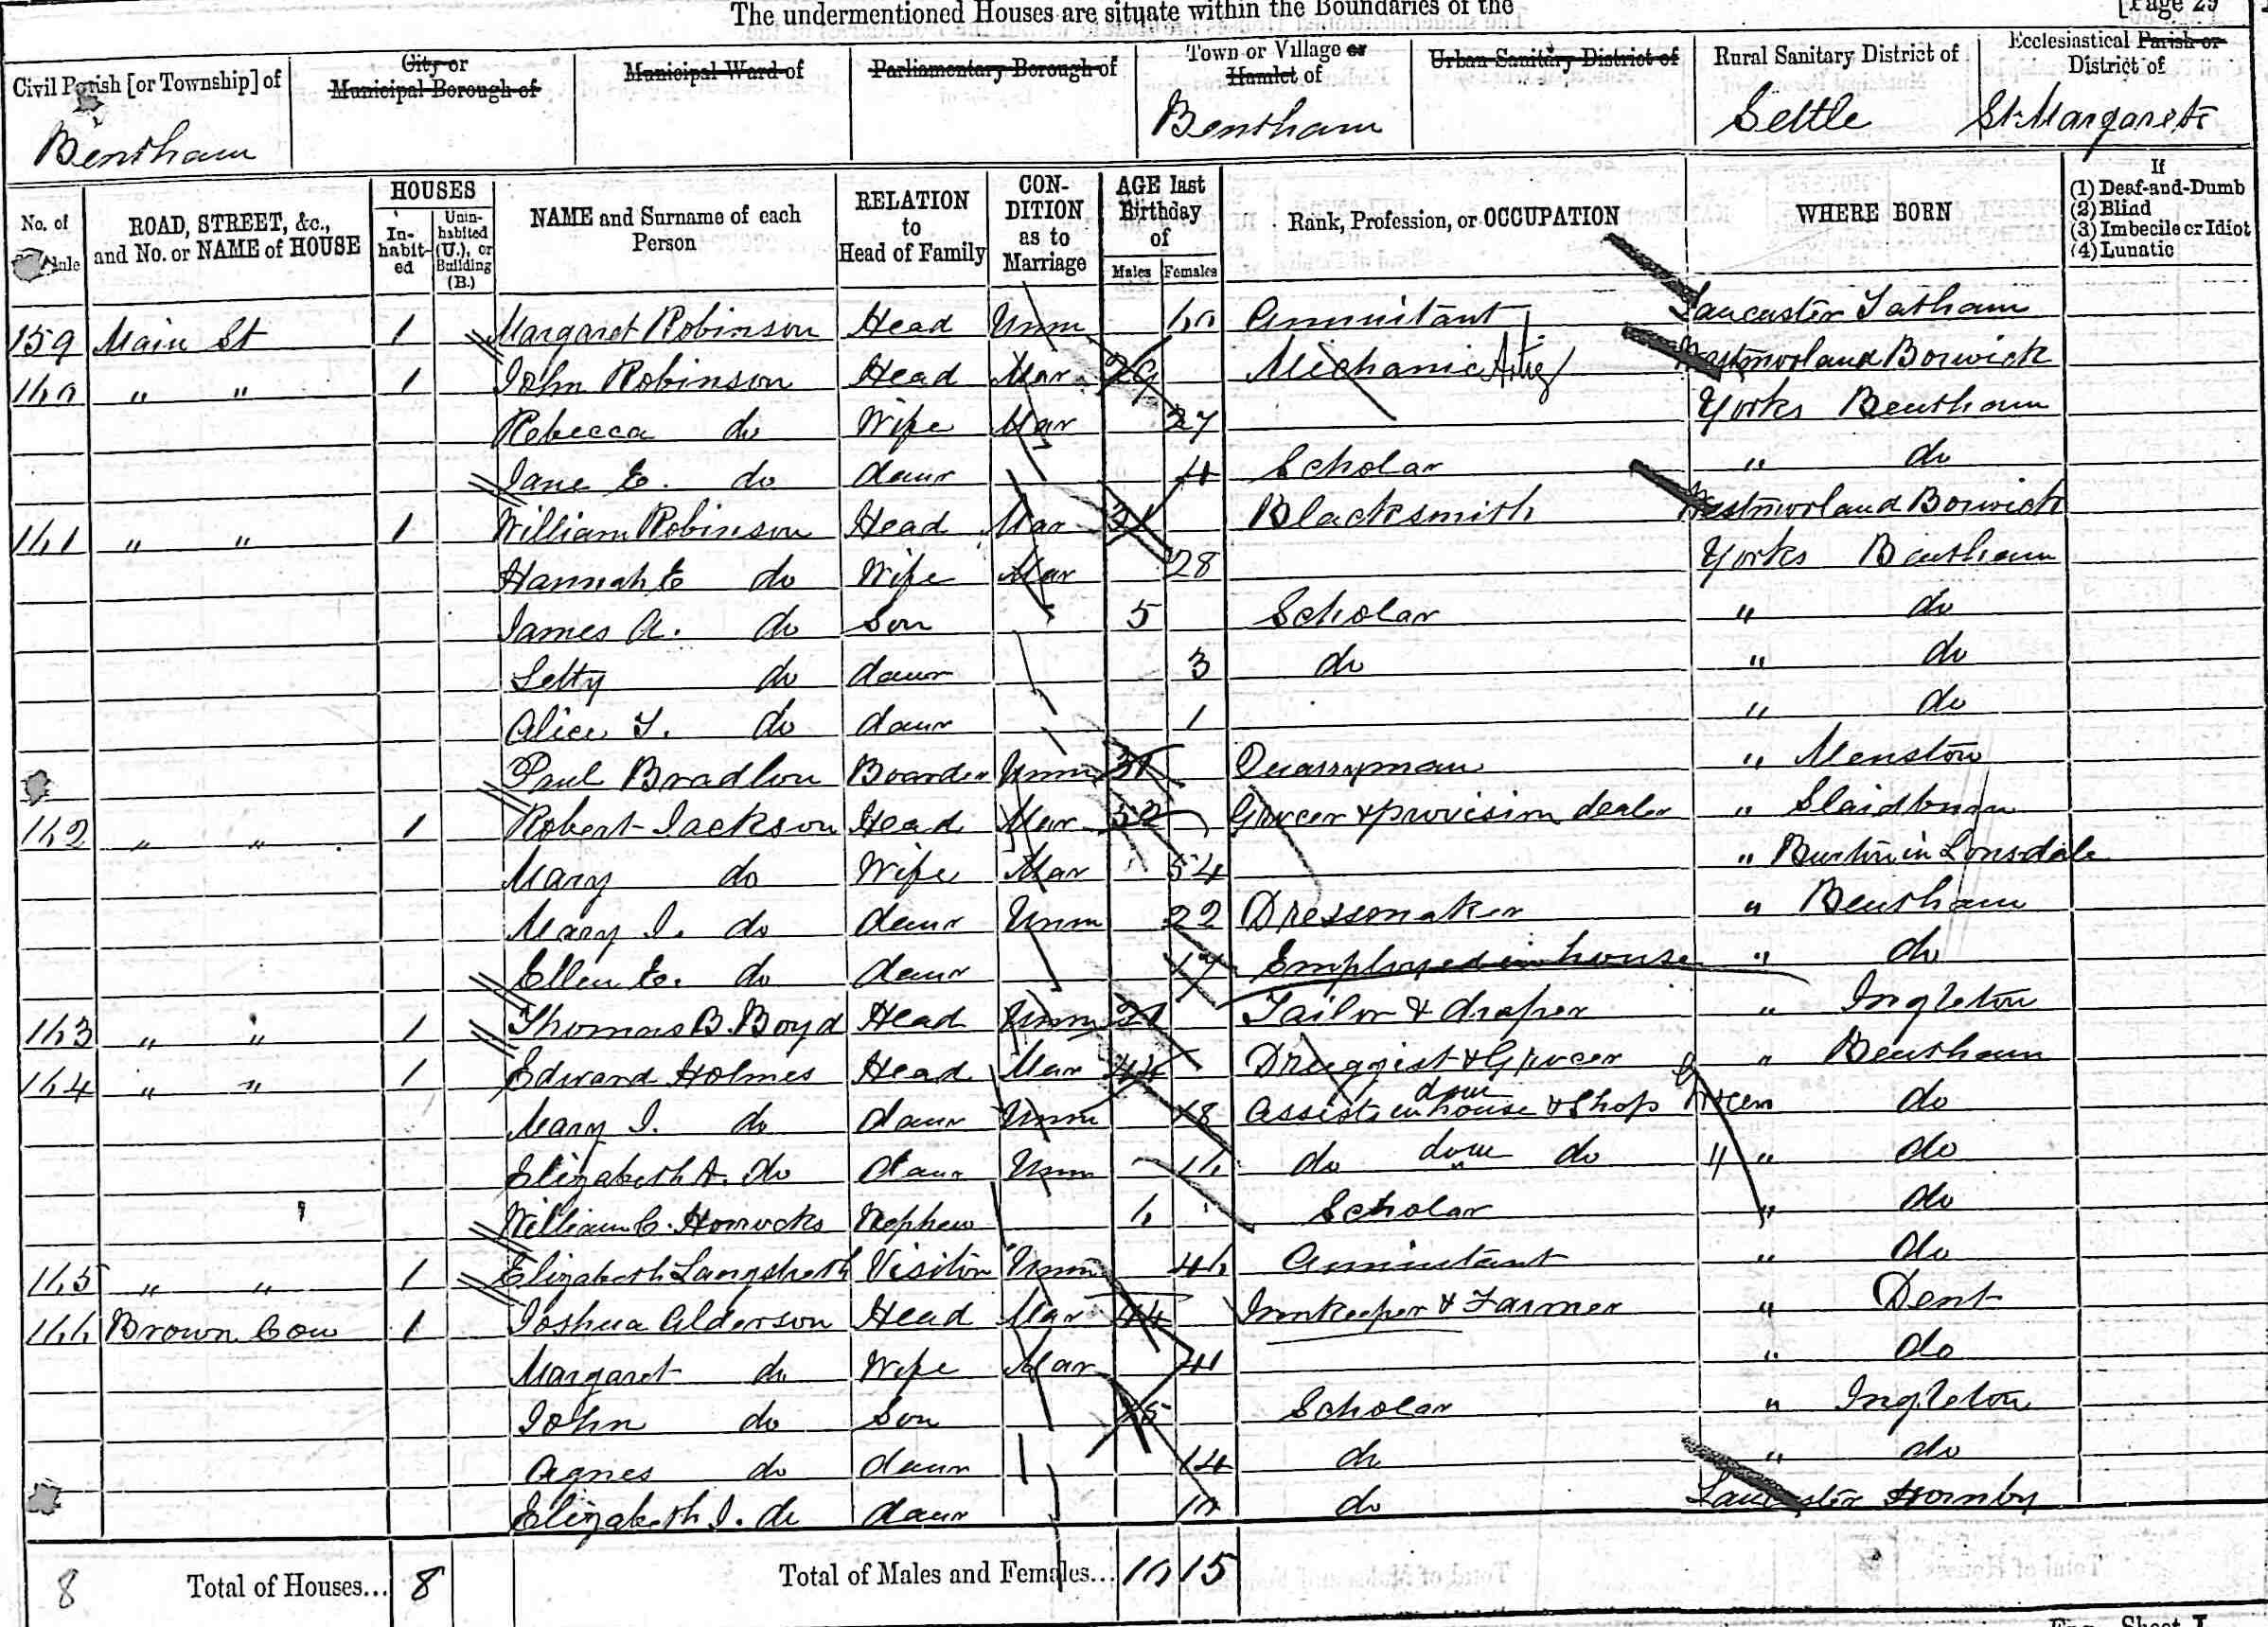 The undermentioned Houses are situate within the Boundaries of the
[Page 29
Civil Parish [or Township] of
City or Municipal Borough of
Municipal Ward of
Parliamentary Borough of
Town or Village or Hamlet of
Urban Sanitary District of
Rural Sanitary District of
Ecclesiastical Parish or District of
Bentham
Bentham
Settle
St Margarets
No. of Schedule
ROAD, STREET, &c., and No. or NAME of HOUSE
HOUSES
In-habit-ed
Unin-habited (U.), or Building (B.)
NAME and Surname of each Person
RELATION to Head of Family
CON-DITION as to Marriage
AGE last Birthday of
Males
Females
Rank, Profession, or OCCUPATION
WHERE BORN
If
(1) Deaf-and-Dumb
(2) Blind
(3) Imbecile or Idiot
(4) Lunatic
159 Main St 1 Margaret Robinson Head Unm 60 Annuitant Lancaster Tatham
160 " " 1 John Robinson Head Mar 29 Mechanic Westmorland Borwick
Rebecca do Wife Mar 27 Yorks Bentham
Jane E. do daur 4 Scholar " do
161 " " 1 William Robinson Head Mar 31 Blacksmith Westmorland Borwick
Hannah E do Wife Mar 28 Yorks Bentham
James A. do Son 5 Scholar " do
Letty do daur 3 do " do
Alice T. do daur 1 " do
Paul Bradlow Boarder Unm 31 Quarryman " Menston
162 " " 1 Robert Jackson Head Mar 52 Grocer & provision dealer " Slaidburn
Mary do Wife Mar 54 " Burton in Lonsdale
Mary I. do daur Unm 22 Dressmaker " Bentham
Ellen E. do daur 17 Employed in house " do
163 " " 1 Thomas B. Boyd Head Unm 21 Tailor & draper " Ingleton
164 " " 1 Edward Holmes Head Mar 44 Druggist & Grocer " Bentham
Mary I. do daur Unm 18 Assists in dom house & Shop Grocer do
Elizabeth A. do daur Unm 16 do dom do " " do
William C. Horrocks Nephew 6 Scholar " do
165 " " 1 Elizabeth Langstreth Visitor Unm 46 Annuitant " do
166 Brown Cow 1 Joshua Alderson Head Mar 44 Innkeeper & Farmer " Dent
Margaret do Wife Mar 41 " do
John do Son 15 Scholar " Ingleton
Agnes do daur 14 do " do
Elizabeth I. do daur 10 do Lancaster Hornby
8 Total of Houses... 8 Total of Males and Females... 10 15